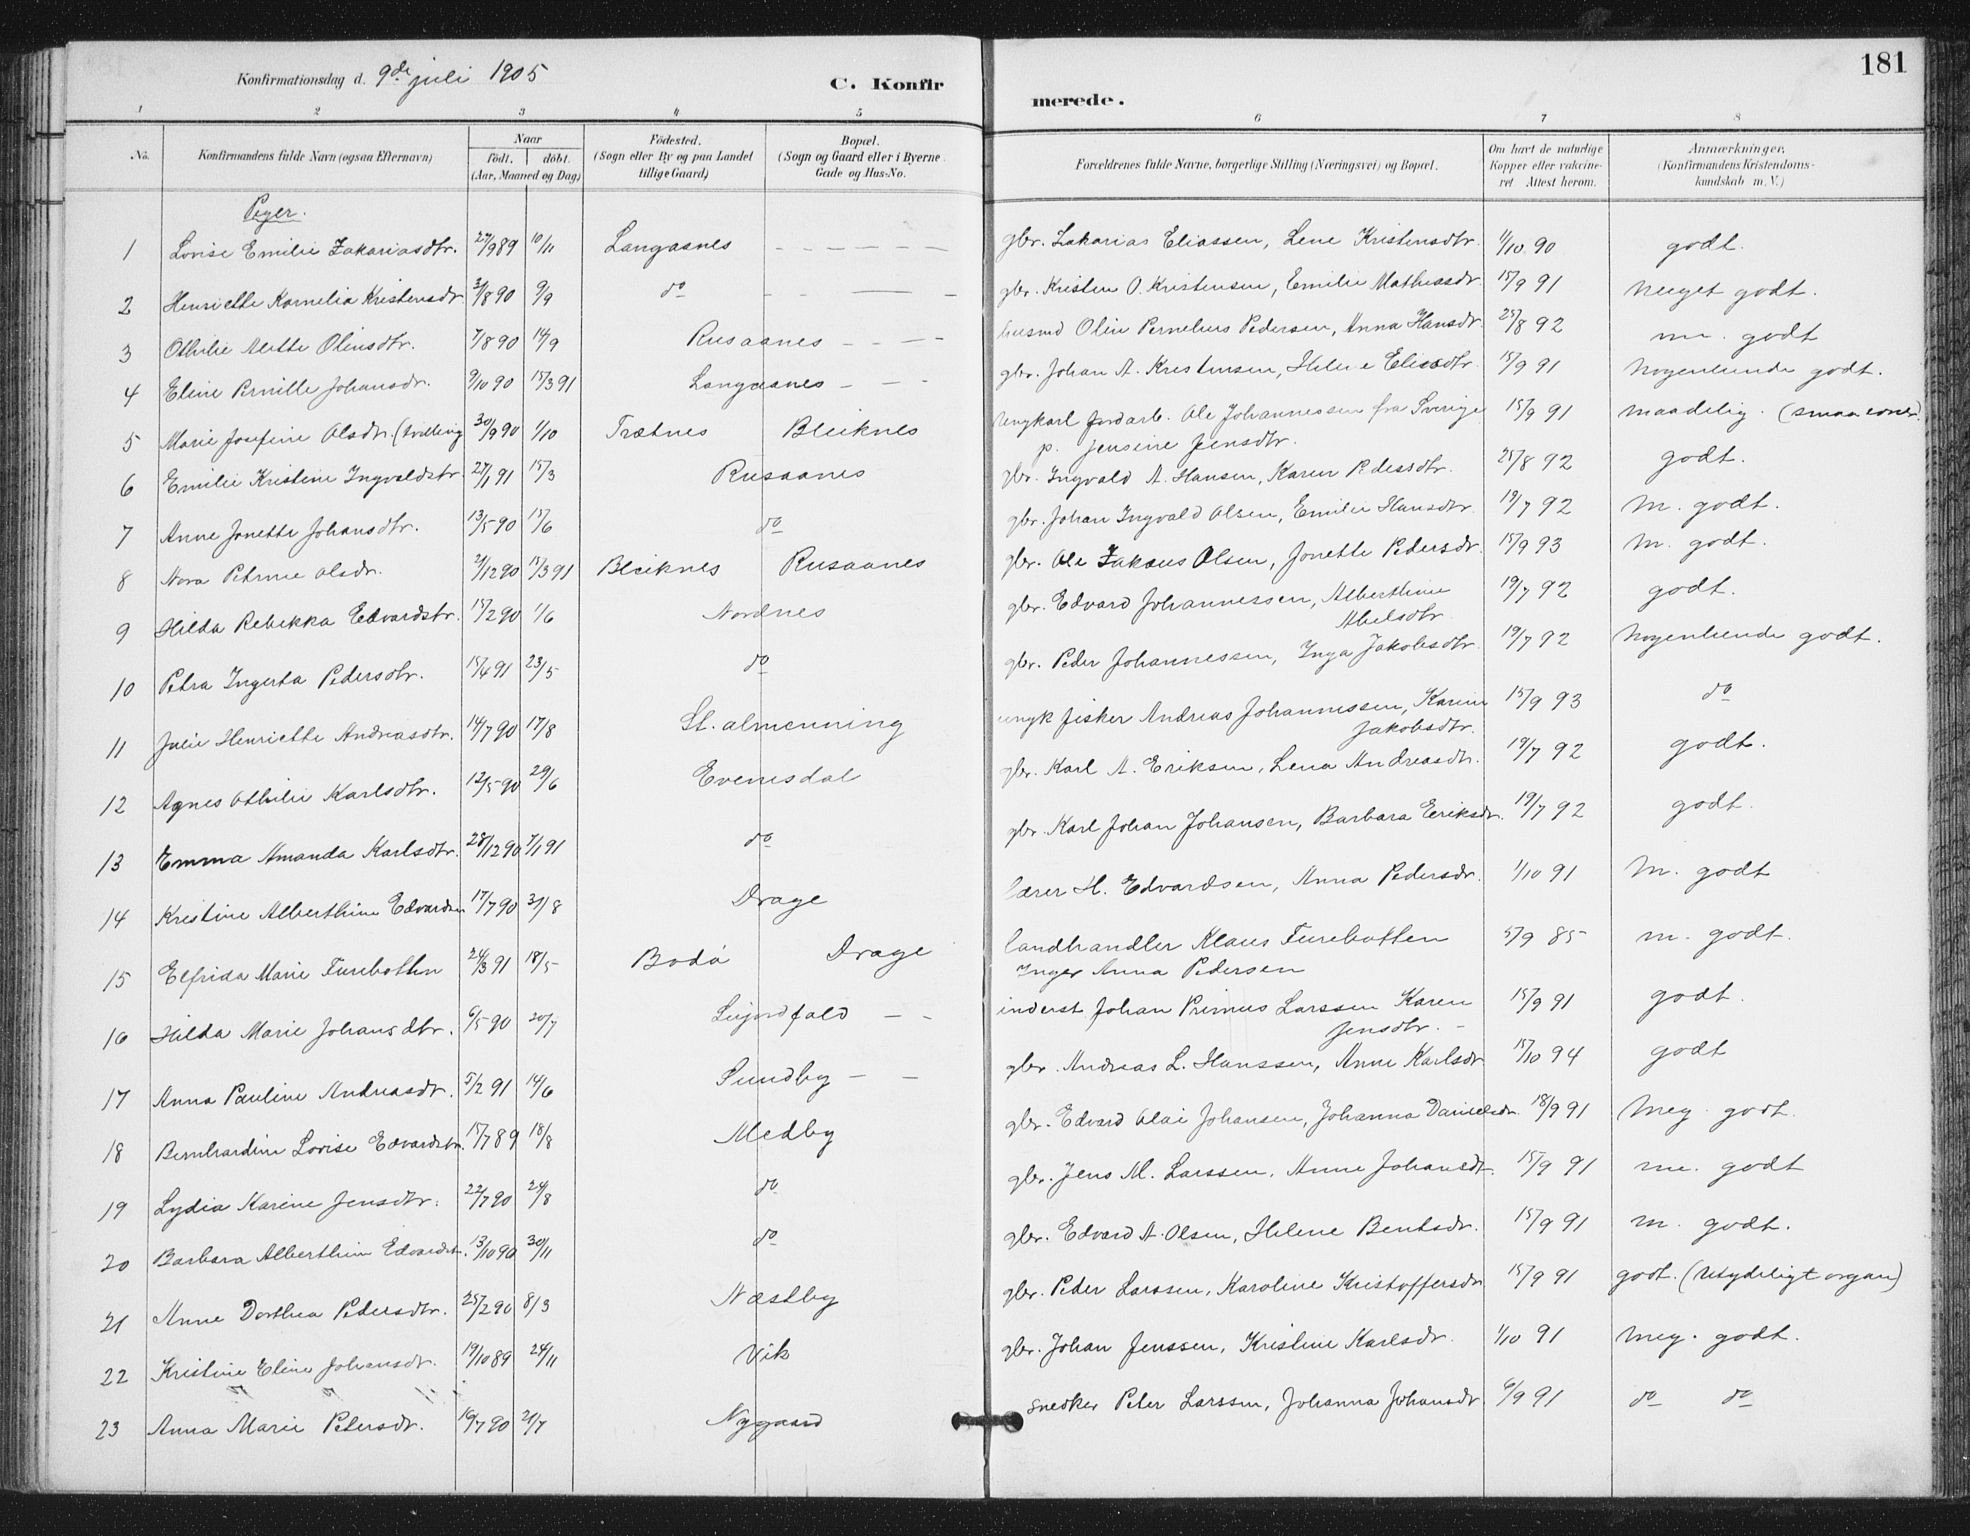 Konfirmationsdag d. 9de juli 1905
C. Konfir
merede.
181
1 2 3 4 5 6 7 8
No. Konfirmandens fulde Navn (ogsaa Efternavn) Naar födt. döbt. (Aar, Maaned og Dag) Födested. (Sogn eller By og paa Landet tillige Gaard) Bopæl. (Sogn og Gaard eller i Byerne Gade og Hus-No. Forældrenes fulde Navne, borgerlige Stilling (Næringsvei) og Bopæl. Om havt de naturlige Kopper eller vakcineret Attest herom. Anmærkninger. (Konfirmandens Kristendomskundskab m. V.)
Piger.
1 Lovise Emilie Zakariasdtr. 27/9 89 10/11 Langaanes — — — — — gbr. Zakarias Eliassen, Lene Kristensdtr. 1/10 90 godt.
2 Henriette Kornelia Kristensdtr 31/8 90 9/9 do — — — — gbr. Kristen O. Kristensen, Emilie Mathiasdtr 15/9 91 meget godt.
3 Othilie Mette Olinsdtr. 7/8 90 14/9 Rusaanes — — — — husmd Olin Pernelius Pedersen, Anna Hansdtr. 25/8 92 m. godt
4 Eline Pernille Johansdr. 9/10 90 15/3 91 Langaanes — — — gbr. Johan A. Kristensen, Helene Eliasdtr. 15/9 91 nogenlunde godt.
5 Marie Josefine Olsdtr. (tvilling 30/9 90 1/10 Trætnes Bleiknes ungkarl jordarb. Ole Johannessen fra Sverige 15/9 91 maadelig. (smaa evner).
p. Jensine Jensdtr.
6 Emilie Kristine Ingvaldstr 27/1 91 15/3 Rusaanes gbr. Ingvald A. Hansen, Karen Pedersdtr. 25/8 92 godt.
7 Anne Jonette Johansdtr. 13/5 90 15/6 do gbr. Johan Ingvald Olsen, Emilie Hansdtr. 19/7 92 m. godt.
8 Nora Petrine Olsdr. 21/12 90 15/3 91 Bleiknes Rusaanes gbr. Ole Zakeus Olsen, Jonette Pedersdr. 15/9 93 m. godt.
9 Hilda Rebekka Edvardstr. 15/2 90 1/6 Nordnes gbr. Edvard Johannessen, Alberthine 19/7 92 godt.
Abelsdtr.
10 Petra Ingerta Pedersdtr. 15/4 91 23/5 do gbr. Peder Johannessen, Inga Jakobsdtr. 19/7 92 nogenlunde godt.
11 Julie Henriette Andreasdtr. 14/7 90 17/8 St. almenning fisker Andreas Johannessen, Karine 15/9 93 do
Jakobsdtr.
12 Agnes Othilie Karlsdtr. 12/5 90 29/6 Evenesdal gbr. Karl A. Eriksen, Lena Andreasdtr. 19/7 92 godt.
13 Emma Amanda Karlsdtr. 28/12 90 7/1 91 do gbr. Karl Johan Johansen, Barbara Eriksdr. 19/7 92 godt.
14 Kristine Alberthine Edvardsen 17/7 90 31/8 Drage lærer H. Edvardsen, Anna Pedersdr. 1/10 91 m. godt
15 Elfrida Marie Furebotten 24/3 91 18/5 Bodø Drage landhandler Klaus Furebotten 5/9 85 m. godt.
Inger Anna Pedersen
16 Hilda Marie Johansdtr. 6/5 90 20/7 — — inderst Johan Primus Larssen Karen 15/9 91 godt.
Jensdtr. —
17 Anna Pauline Andreasdr. 5/2 91 14/6 Sundby — — gbr. Andreas L. Hanssen, Anne Karlsdr 15/10 94 godt
18 Bernhardine Lovise Edvardstr. 15/7 89 18/8 Medby gbr. Edvard Olai Johansen, Johanna Danielsdr. 18/9 91 meg. godt.
19 Lydia Karine Jensdtr. 22/7 90 24/8 do gbr. Jens M. Larssen, Anne Johansdt. 15/9 91 m. godt
20 Barbara Alberthine Edvardstr. 13/10 90 30/11 do gbr. Edvard A. Olsen, Helene Bentsdr. 15/9 91 m. godt.
21 Anne Dorthea Pedersdtr. 25/2 90 8/3 Næstby gbr. Peder Larssen, Karoline Kristoffersdr 15/9 91 godt. (utydeligt organ)
22 Kristine Eline Johansdr. 19/10 89 24/11 Vik gbr. Johan Jenssen, Kristine Karlsdr. 1/10 91 meg. godt.
23 Anna Marie Petersdr. 16/7 90 21/7 Nygaard snedker Peter Larssen, Johanna Johansdr 6/9 91 do do